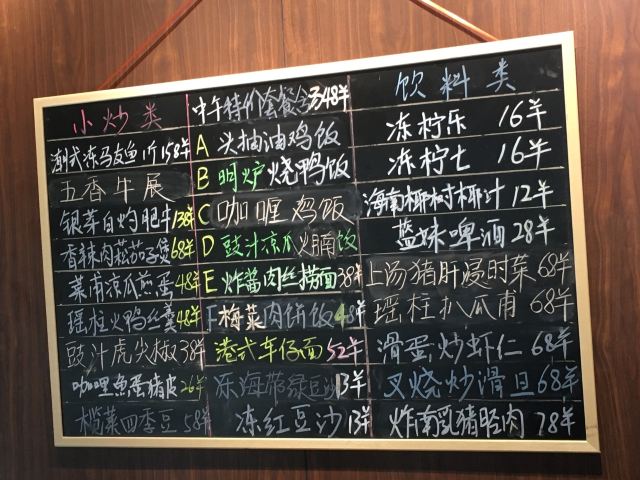 小炒类
潮式冻马友鱼1斤158半
五香牛展
银芽白灼肥牛138半
香辣肉菘茄子煲68半
菜甫凉瓜煎蛋48半
瑶柱火鸭丝羹48半
豉汁虎尖椒38半
咖喱鱼蛋猪皮26半
榄菜四季豆58半
中午特价套餐全为48半
A 头抽油鸡饭
B 明炉烧鸭饭
C 咖喱鸡饭
D 豉汁凉瓜火腩饭
E 炸酱肉丝捞面38半
F 梅菜肉饼饭48半
港式车仔面52半
冻海带绿豆沙13半
冻红豆沙13半
饮料类
冻柠乐 16半
冻柠七 16半
海南椰树椰汁12半
蓝妹啤酒28半
上汤猪肝浸时菜68半
瑶柱扒瓜甫68半
滑蛋炒虾仁68半
叉烧炒滑旦68半
炸南乳猪胫肉78半